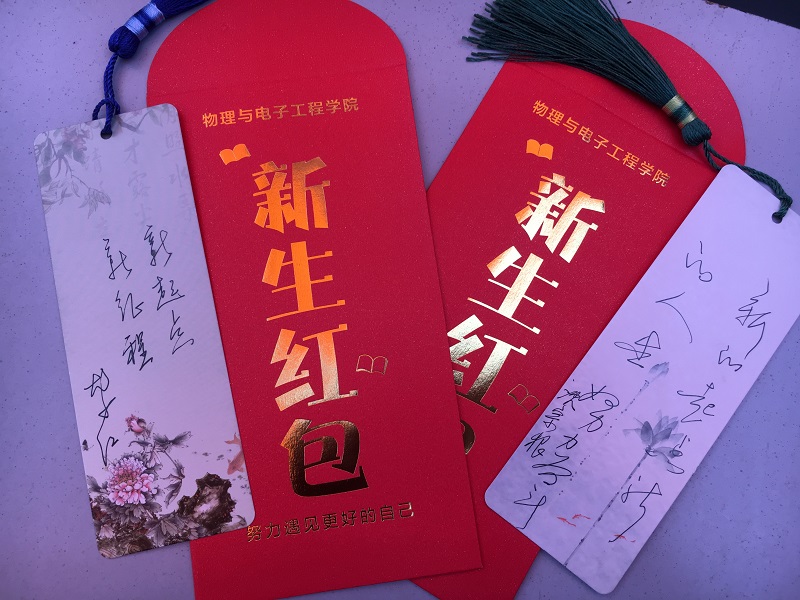 新起点
新征程
物理与电子工程学院
新生红包
努力遇见更好的自己
物理与电子工程学院
新生红
新的起点新
的人生
努力奋斗